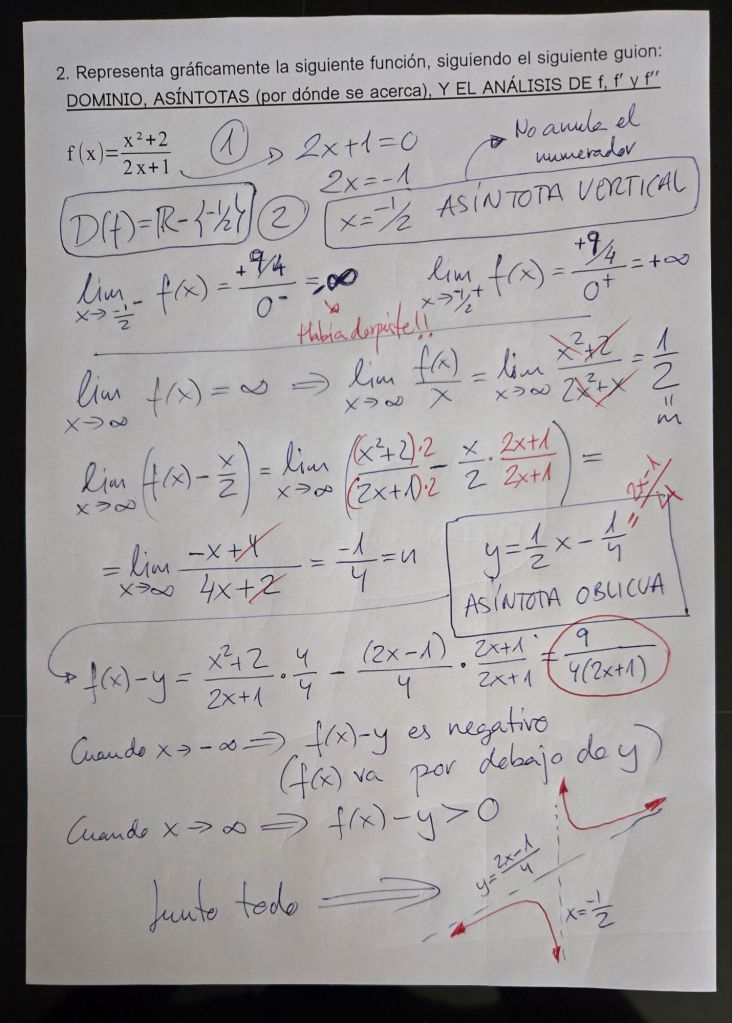 2. Representa gráficamente la siguiente función, siguiendo el siguiente guion:
DOMINIO, ASÍNTOTAS (por dónde se acerca), Y EL ANÁLISIS DE f, f' y f''
f(x)=(x²+2)/(2x+1) ① → 2x+1=0
2x=-1
No anula el
numerador
D(f)=ℝ-{-1/2} ② x=-1/2 ASÍNTOTA VERTICAL
lim x→-1/2⁻ f(x) = (+9/4)/0⁻ = -∞ lim x→-1/2⁺ f(x) = (+9/4)/0⁺ = +∞
Había despiste!!
lim x→∞ f(x) = ∞ ⇒ lim x→∞ f(x)/x = lim x→∞ (x²+2)/(2x²+x) = 1/2 = m
lim x→∞ (f(x) - x/2) = lim x→∞ ((x²+2)·2/(2x+1)·2 - x/2 · (2x+1)/(2x+1)) =
= lim x→∞ (-x+4)/(4x+2) = -1/4 = n
y = 1/2 x - 1/4
= (2x-1)/4
ASÍNTOTA OBLICUA
f(x)-y = (x²+2)/(2x+1) · 4/4 - (2x-1)/4 · (2x+1)/(2x+1) = 9/(4(2x+1))
Cuando x→-∞ ⇒ f(x)-y es negativo
(f(x) va por debajo de y)
Cuando x→∞ ⇒ f(x)-y>0
Junto todo ⇒
y=(2x-1)/4
x=-1/2